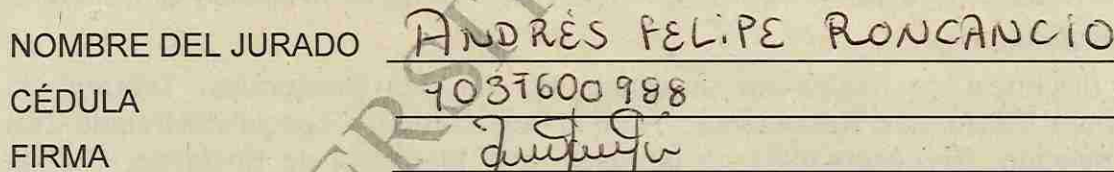 NOMBRE DEL JURADO ANDRÉS FELIPE RONCANCIO
CÉDULA 1037600988
FIRMA